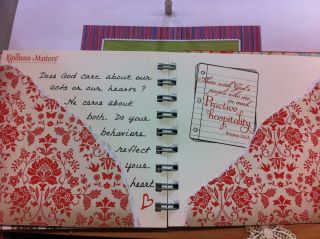 Kindness Matters
Does God care about our
acts or our hearts?
He cares about
both. Do your
behaviors
reflect
your
heart
Share with God's
people who are
in need.
Practice
hospitality.
Romans 12:13